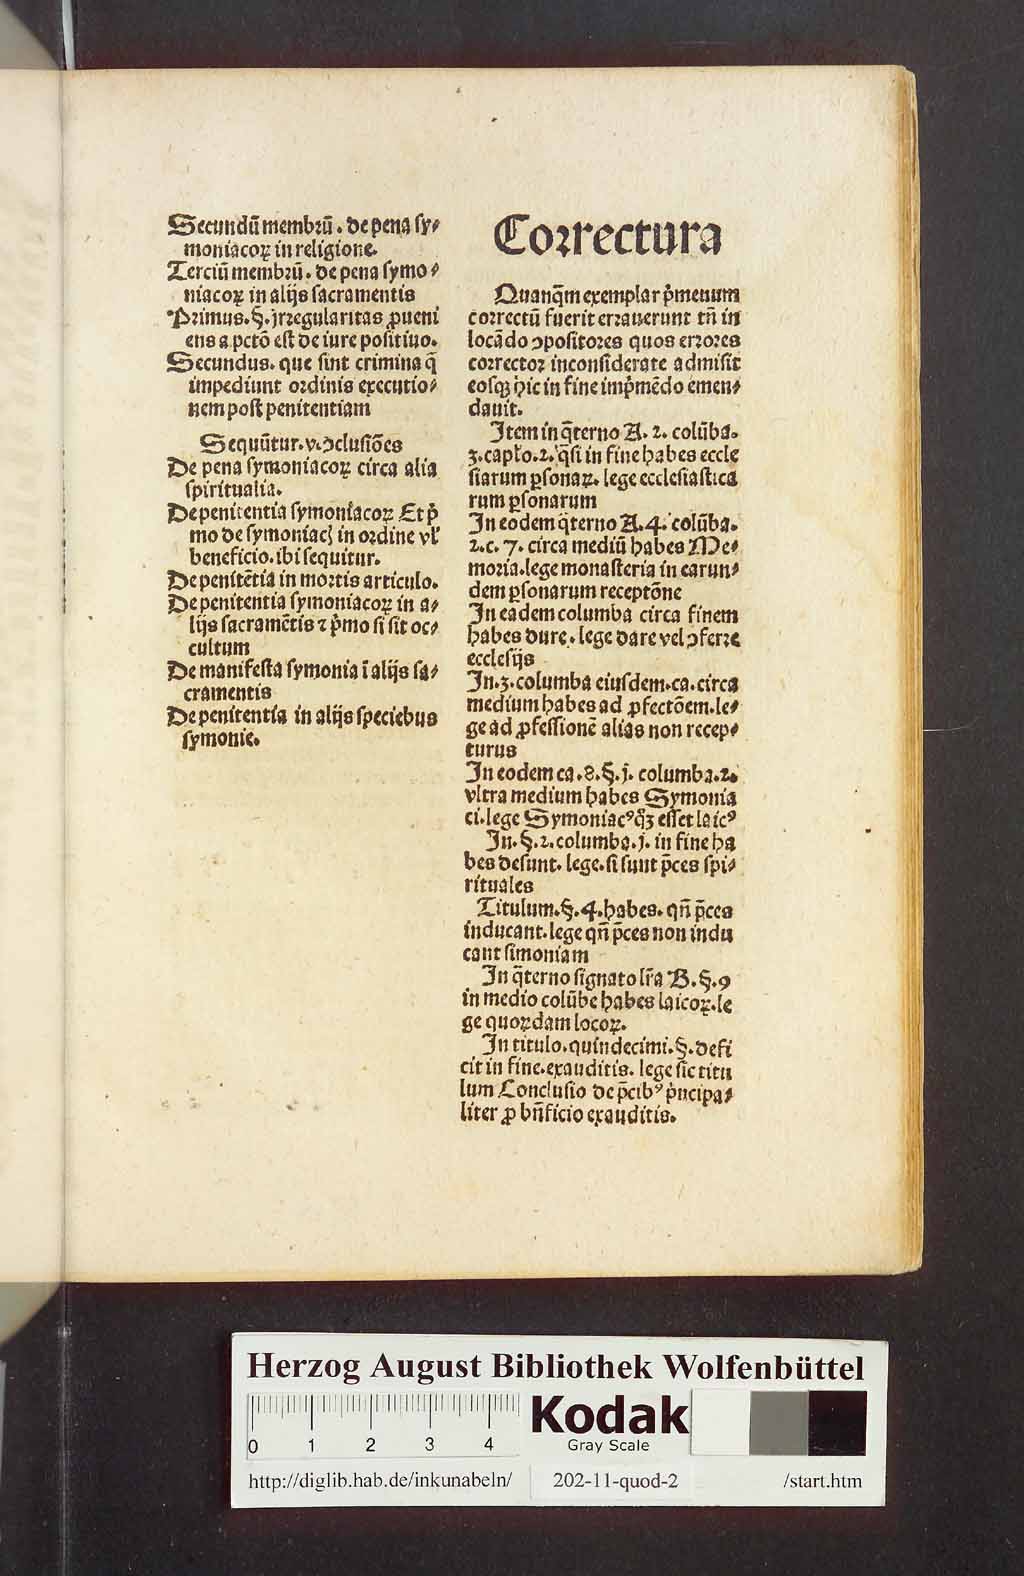 Secundū membrū. de pena sy⸗
moniacoꝝ in religione.
Terciū membrū. de pena symo⸗
niacoꝝ in alijs sacramentis
Primus. §. jrregularitas ꝓueni
ens a pctō est de iure positiuo.
Secundus. que sint crimina q̄
impediunt ordinis executio⸗
nem post penitentiam
Sequūtur. v. ↄclusiōes
De pena symoniacoꝝ circa alia
spiritualia.
De penitentia symoniacoꝝ Et p̄
mo de symoniacꝭ in ordine vl'
beneficio. ibi sequitur.
De penitētia in mortis articulo.
De penitentia symoniacoꝝ in a⸗
lijs sacramētis ⁊ p̄mo si sit oc⸗
cultum
De manifesta symonia ī alijs sa⸗
cramentis
De penitentia in alijs speciebus
symonie.
Correctura
Quanq̄m exemplar p̄menum
correctū fuerit errauerunt tn̄ in
locādo ↄpositores quos errores
corrector inconsiderate admisit
eosqꝫ hic in fine imp̄mēdo emen⸗
dauit.
Item in q̄terno A. 2. colūba.
3. capło. 2. q̄si in fine habes eccle
siarum ꝑsonaꝝ. lege ecclesiastica
rum ꝑsonarum
In eodem q̄terno A. 4. colūba.
2. c. 7. circa mediū habes Me⸗
moria. lege monasteria in earun⸗
dem ꝑsonarum receptōne
In eadem columba circa finem
habes dure. lege dare vel ↄferre
ecclesijs
In. 3. columba eiusdem. ca. circa
medium habes ad ꝓfectōem. le⸗
ge ad ꝓfessionē alias non recep⸗
turus
In eodem ca. 8. §. j. columba. 2.
vltra medium habes Symonia
ci. lege Symoniacꝰ qꝫ esset laicꝰ
In. §. 2. columba. j. in fine ha
bes desunt. lege. si sunt p̄ces spi⸗
rituales
Titulum. §. 4. habes. qn̄ p̄ces
inducant. lege qn̄ p̄ces non indu
cant simoniam
In q̄terno signato lr̄a B. §. 9
in medio colūbe habes laicoꝝ. le
ge quoꝝdam locoꝝ.
In titulo. quindecimi. §. defi
cit in fine. exauditis. lege sic titu
lum Conclusio de p̄cibꝰ p̄ncipa⸗
liter ꝓ bn̄ficio exauditis.
Herzog August Bibliothek Wolfenbüttel
0 1 2 3 4
Kodak
Gray Scale
http://diglib.hab.de/inkunabeln/ 202-11-quod-2 /start.htm